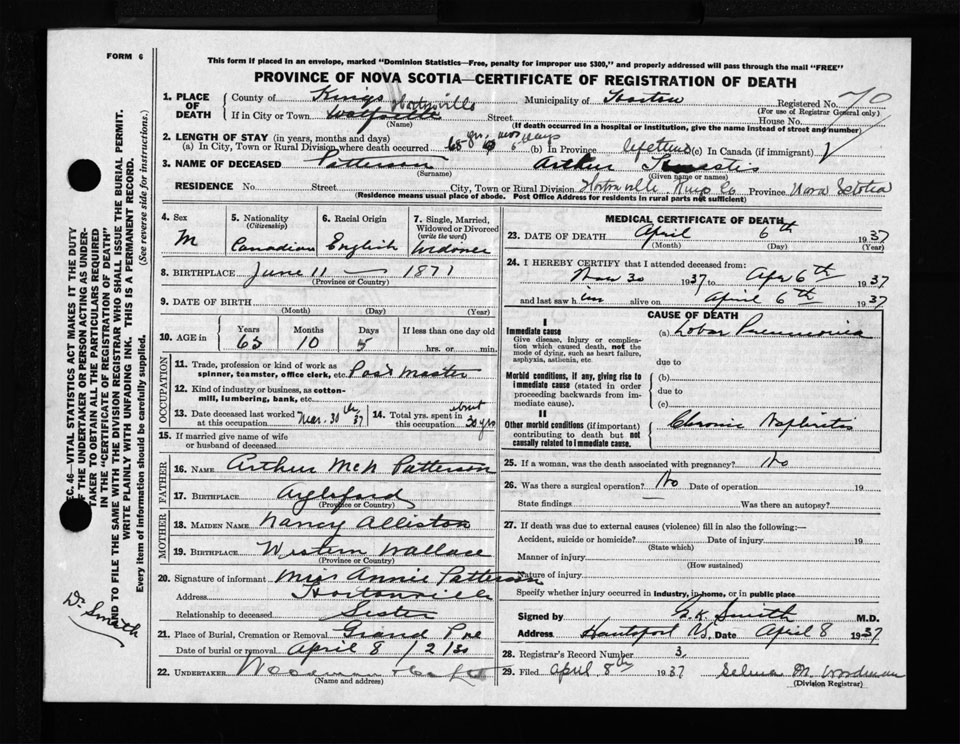 FORM 6
This form if placed in an envelope, marked "Dominion Statistics—Free, penalty for improper use $300," and properly addressed will pass through the mail "FREE"
PROVINCE OF NOVA SCOTIA—CERTIFICATE OF REGISTRATION OF DEATH
1. PLACE OF DEATH
County of Kings Municipality of Horton Registered No. 70
(For use of Registrar General only)
If in City or Town Wolfville Hortonville Street House No.
(Name) (If death occurred in a hospital or institution, give the name instead of street and number)
2. LENGTH OF STAY (in years, months and days)
(a) In City, Town or Rural Division where death occurred (b) In Province lifetime (c) In Canada (if immigrant)
3. NAME OF DECEASED Patterson Arthur
(Surname) (Given name or names)
RESIDENCE No. Street City, Town or Rural Division Hortonville Kings Co Province Nova Scotia
(Residence means usual place of abode. Post Office Address for residents in rural parts not sufficient)
4. Sex M
5. Nationality (Citizenship) Canadian
6. Racial Origin English
7. Single, Married, Widowed or Divorced (write the word) Widower
8. BIRTHPLACE June 11 — 1871
(Province or Country)
9. DATE OF BIRTH 
(Month) (Day) (Year)
10. AGE in Years Months Days If less than one day old
65 10 5 hrs. or min.
OCCUPATION
11. Trade, profession or kind of work as spinner, teamster, office clerk, etc. Post Master
12. Kind of industry or business, as cotton-mill, lumbering, bank, etc.
13. Date deceased last worked at this occupation Mar. 30th 37
14. Total yrs. spent in this occupation about 30 yrs
15. If married give name of wife or husband of deceased
FATHER
16. NAME Arthur McN Patterson
17. BIRTHPLACE Aylsford
(Province or Country)
MOTHER
18. MAIDEN NAME Nancy Alliston
19. BIRTHPLACE Western Wallace
(Province or Country)
20. Signature of informant Miss Annie Patterson
Address Hortonville
Relationship to deceased Sister
21. Place of Burial, Cremation or Removal Grand Pre
Date of burial or removal April 8 / 2 30
22. UNDERTAKER Woodman
(Name and address)
MEDICAL CERTIFICATE OF DEATH
23. DATE OF DEATH April 6th 1937
(Month) (Day) (Year)
24. I HEREBY CERTIFY that I attended deceased from:
Mar 30 1937 to Apr 6th 1937
and last saw him alive on April 6th 1937
CAUSE OF DEATH
I
Immediate cause
Give disease, injury or complication which caused death, not the mode of dying, such as heart failure, asphyxia, asthenia, etc.
(a) Lobar Pneumonia
due to
Morbid conditions, if any, giving rise to immediate cause (stated in order proceeding backwards from immediate cause).
(b)
due to
(c)
II
Other morbid conditions (if important) contributing to death but not causally related to immediate cause.
Chronic Nephritis
25. If a woman, was the death associated with pregnancy? No
26. Was there a surgical operation? No Date of operation 19
State findings Was there an autopsy?
27. If death was due to external causes (violence) fill in also the following:—
Accident, suicide or homicide? Date of injury 19
(State which)
Manner of injury
(How sustained)
Nature of injury
Specify whether injury occurred in Industry, in home, or in public place
Signed by G. K. Smith M.D.
Address Hantsport N.S. Date April 8 1937
28. Registrar's Record Number 3
29. Filed April 8th 1937 Selma M. Woodman
(Division Registrar)
SEC. 46—VITAL STATISTICS ACT MAKES IT THE DUTY
OF THE UNDERTAKER OR PERSON ACTING AS UNDERTAKER TO OBTAIN ALL THE PARTICULARS REQUIRED
IN THE "CERTIFICATE OF REGISTRATION OF DEATH"
AND TO FILE THE SAME WITH THE DIVISION REGISTRAR WHO SHALL ISSUE THE BURIAL PERMIT.
WRITE PLAINLY WITH UNFADING INK. THIS IS A PERMANENT RECORD.
Every item of information should be carefully supplied. (See reverse side for instructions.)
Dr Smith